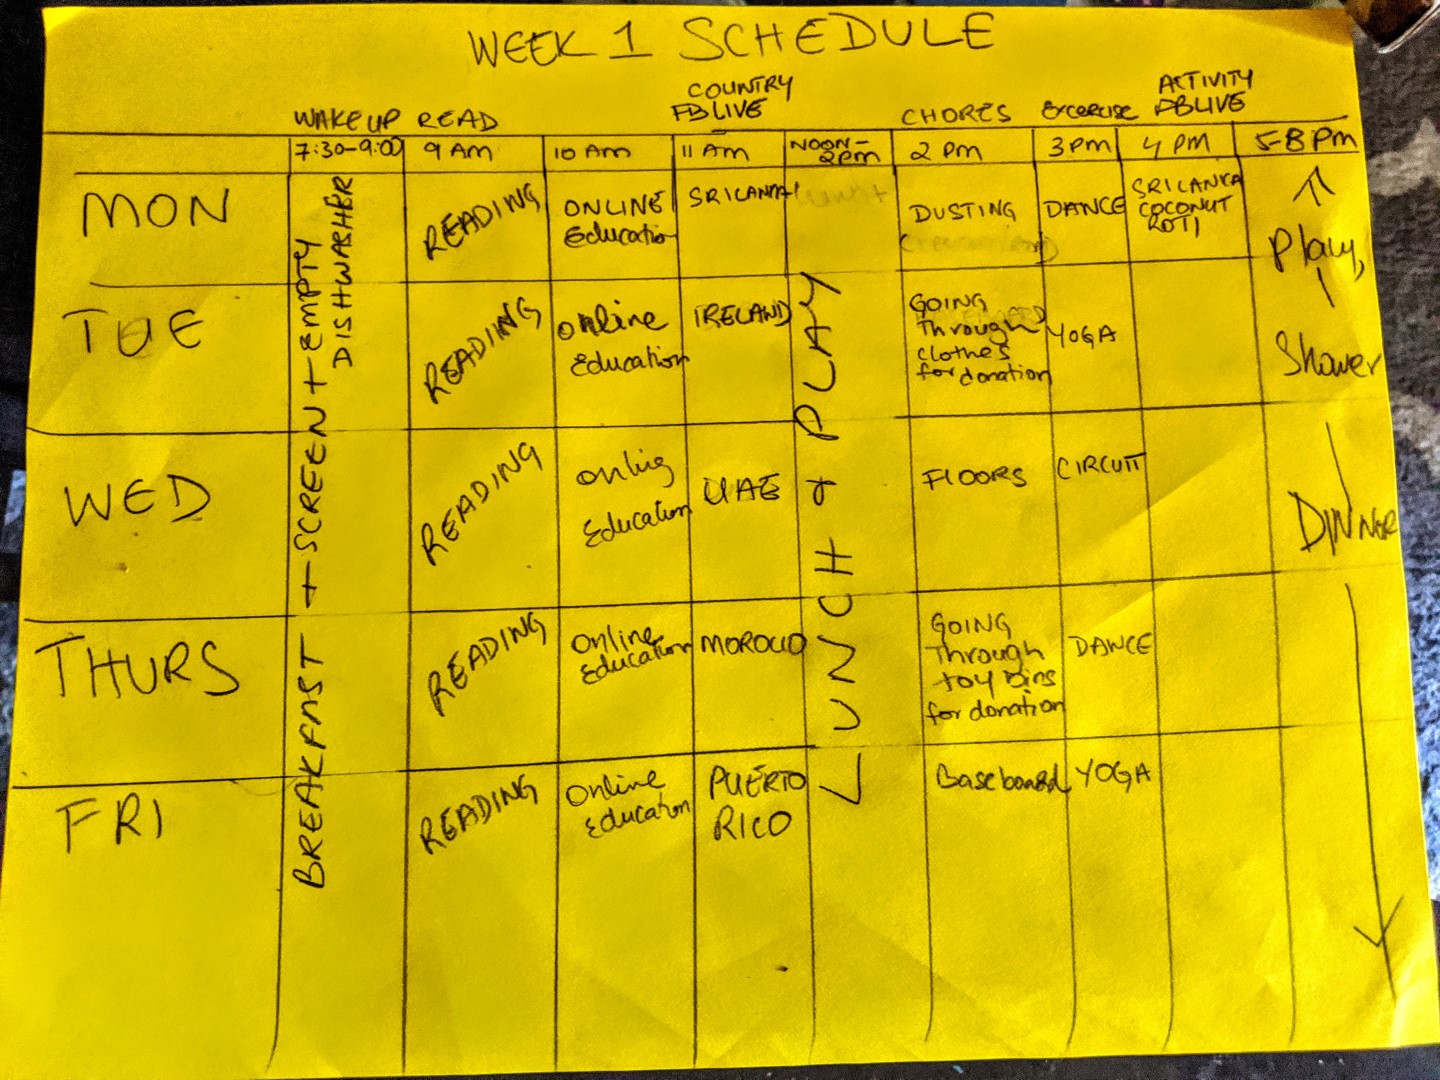 WEEK 1 SCHEDULE
WAKEUP READ COUNTRY FB LIVE CHORES Excercise ACTIVITY FB LIVE
7:30-9:00 9 AM 10 AM 11 AM NOON-2pm 2 PM 3 PM 4 PM 5-8 PM
BREAKFAST + SCREEN + EMPTY DISHWASHER
LUNCH + PLAY
Play,
Shower
DINNER
MON READING ONLINE Education SRILANKA DUSTING DANCE SRILANKA COCONUT ROTI
TUE READING Online Education IRELAND GOING Through clothes for donation YOGA
WED READING Education UAE FLOORS CIRCUIT
THURS READING Online Education MOROCCO GOING Through toy bins for donation DANCE
FRI READING Online Education PUERTO RICO Baseboard YOGA